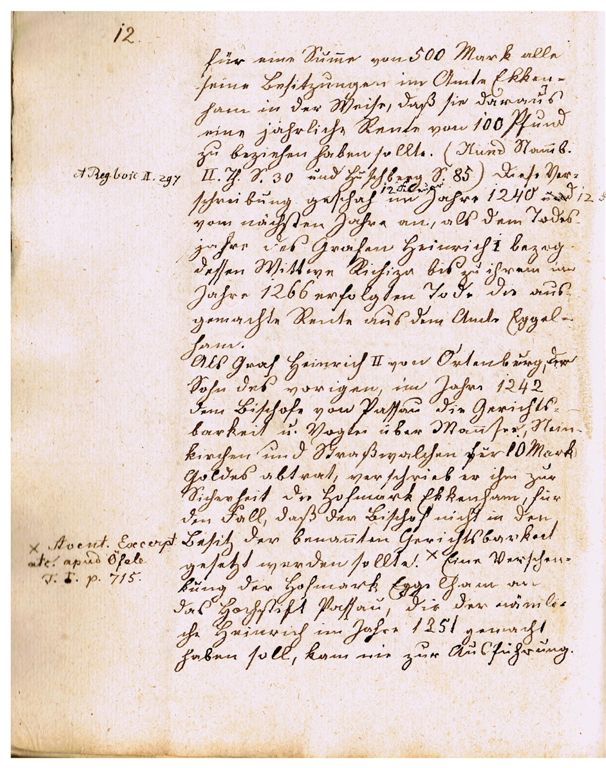 12.
für eine Summe von 500 Mark alle
seine Besitzungen im Amte Ekken-
ham in der Weise, daß sie daraus
eine jährliche Rente von 100 Pfund
zu beziehen haben sollte. (Hund Stamb.
A Reg. boic II. 297
II. Th. S. 30 und Huschberg S. 85) Diese Ver-
schreibung geschah im Jahre 1240 und
vom nächsten Jahre an, als dem Todes-
jahre des Grafen Heinrich I bezog
dessen Wittwe Richiza bis zu ihrem im
Jahre 1266 erfolgten Tode die aus-
gemachte Rente aus dem Amte Eggel-
ham.
Als Graf Heinrich II von Ortenburg, der
Sohn des vorigen, im Jahre 1242
dem Bischofe von Passau die Gerichts-
barkeit u. Vogtei über Mansee, Stein-
kirchen und Straßwalchen für 10 Mark
Goldes abtrat, verschrieb er ihm zur
Sicherheit die Hofmark Ekkenham, für
den Fall, daß der Bischof nicht in den
x Avent. Excerpt
Besitz der benannten Gerichtsbarkeit
etc. apud Öfele
gesetzt werden sollte. x Eine Verschen-
T. I. p. 715.
kung der Hofmark Eggelham an
das Hochstift Passau, die der nämli-
che Heinrich im Jahre 1251 gemacht
haben soll, kam nie zur Ausführung.